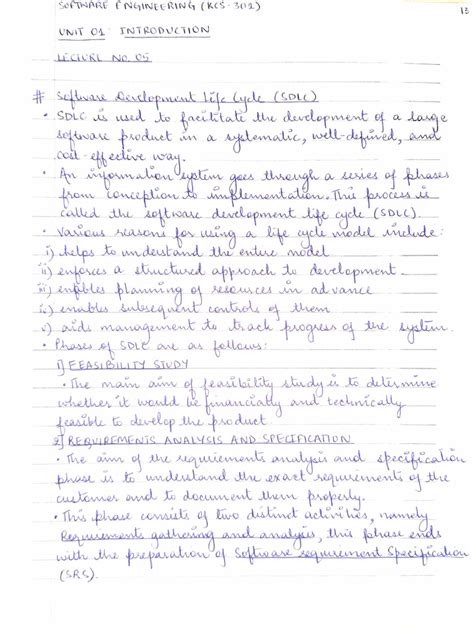 SOFTWARE ENGINEERING (KCS-301)
13
UNIT 01: INTRODUCTION
LECTURE NO. 05
# Software Development Life Cycle (SDLC)
• SDLC is used to facilitate the development of a large
software product in a systematic, well-defined, and
cost-effective way.
• An information system goes through a series of phases
from conception to implementation. This process is
called the software development life cycle (SDLC).
• Various reasons for using a life cycle model include:
i) helps to understand the entire model
ii) enforces a structured approach to development
iii) enables planning of resources in advance
iv) enables subsequent controls of them
v) aids management to track progress of the system.
• Phases of SDLC are as follows:
1) FEASIBILITY STUDY
• The main aim of feasibility study is to determine
whether it would be financially and technically
feasible to develop the product
2) REQUIREMENTS ANALYSIS AND SPECIFICATION
• The aim of the requirements analysis and specification
phase is to understand the exact requirements of the
customer and to document them properly.
• This phase consists of two distinct activities, namely
Requirements gathering and analysis, this phase ends
with the preparation of Software requirement Specification
(SRS).